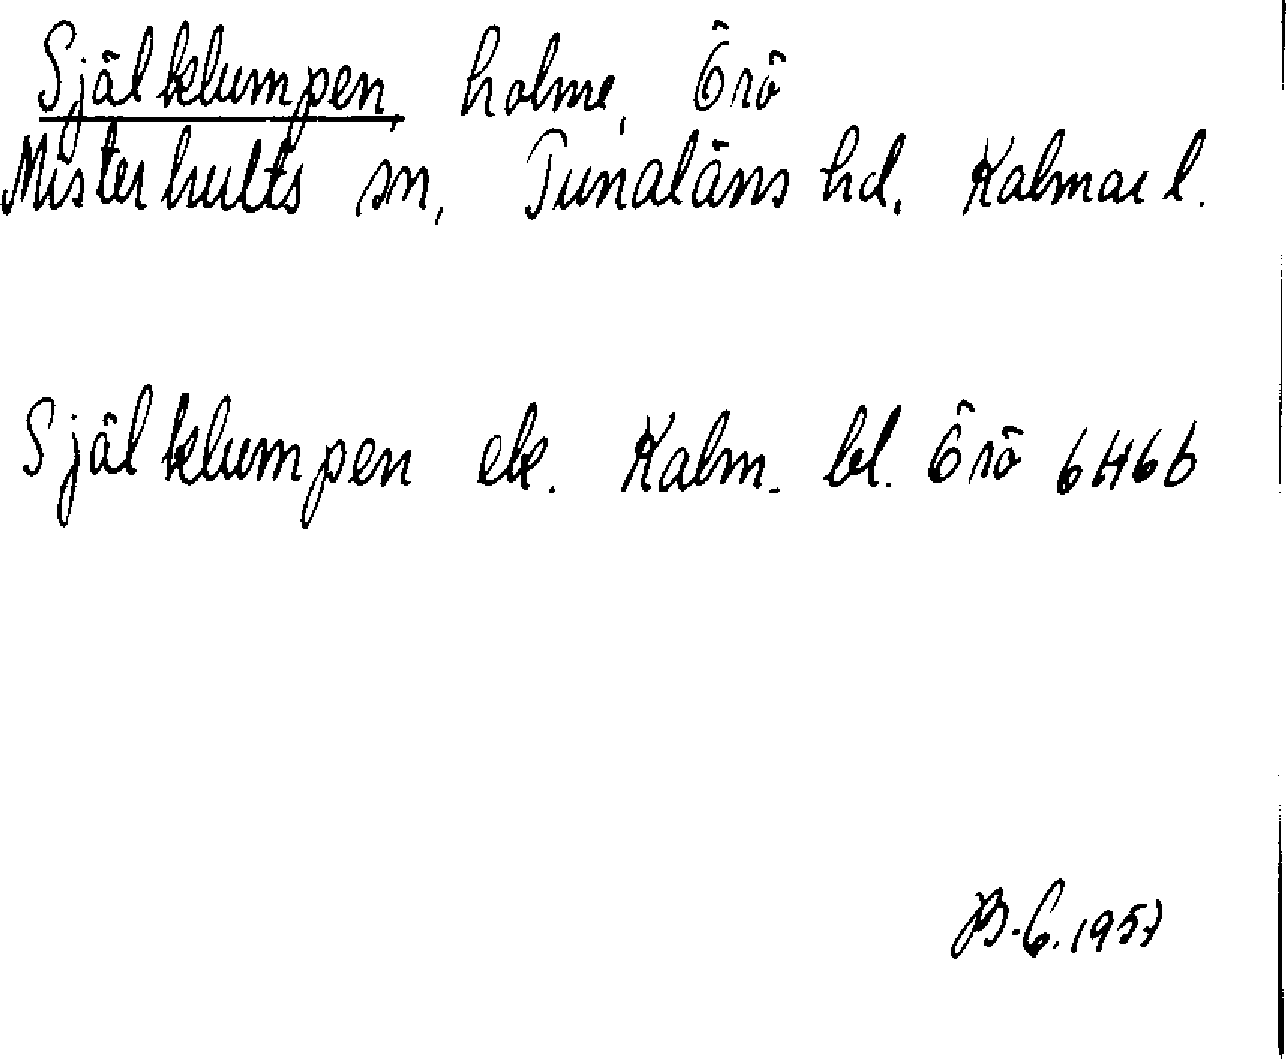 Själklumpen, holme, Örö
Misterhults sn, Tunaläns hd. Kalmar l.
Själklumpen ek. Kalm. bl. Örö 6H6b
B-C. 1957